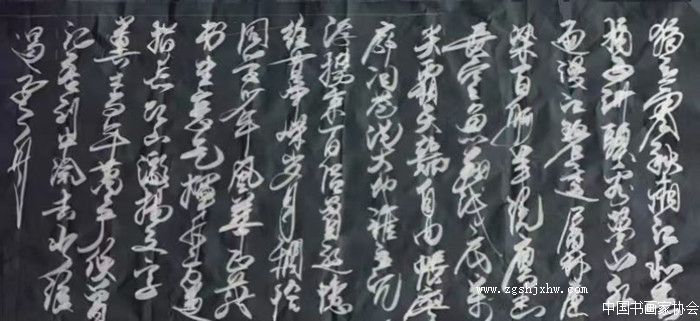 独立寒秋湘江北去
橘子洲头看万山红
遍漫江碧透层林尽
染百舸争流鹰击
长空鱼翔浅底万
类霜天竞自由怅寥
廓问苍茫大地谁主沉
浮携来百侣曾游忆
往昔峥嵘岁月稠恰
同学少年风华正茂
书生意气挥斥方遒
指点江山激扬文字
粪土当年万户侯曾
记否到中流击水浪
遏飞舟
www.zgshjxhw.com
中国书画家协会